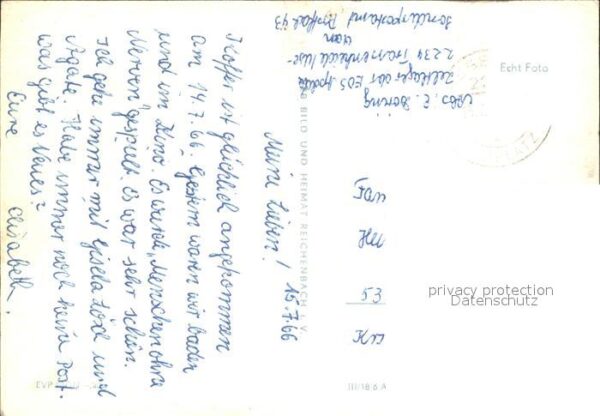 15.7.66
Meine Lieben!
Koffer ist glücklich angekommen
am 14.7.66. Gestern waren wir baden
und im Kino. Es wurde „Menschen ohne
Nerven“ gespielt. Es war sehr schön.
Ich gehe immer mit Gisela und
Agathe. Habe immer noch keine Post.
Was gibt es Neues?
Eure
Elisabeth.
Abs. E.
Zeltlager der EOS
2234 Trassenheide/Use-
dom
Sonderpostamt Postfach 43
Echt Foto
BILD UND HEIMAT REICHENBACH i. V.
53
privacy protection
Datenschutz
EVP
III/18/6 A